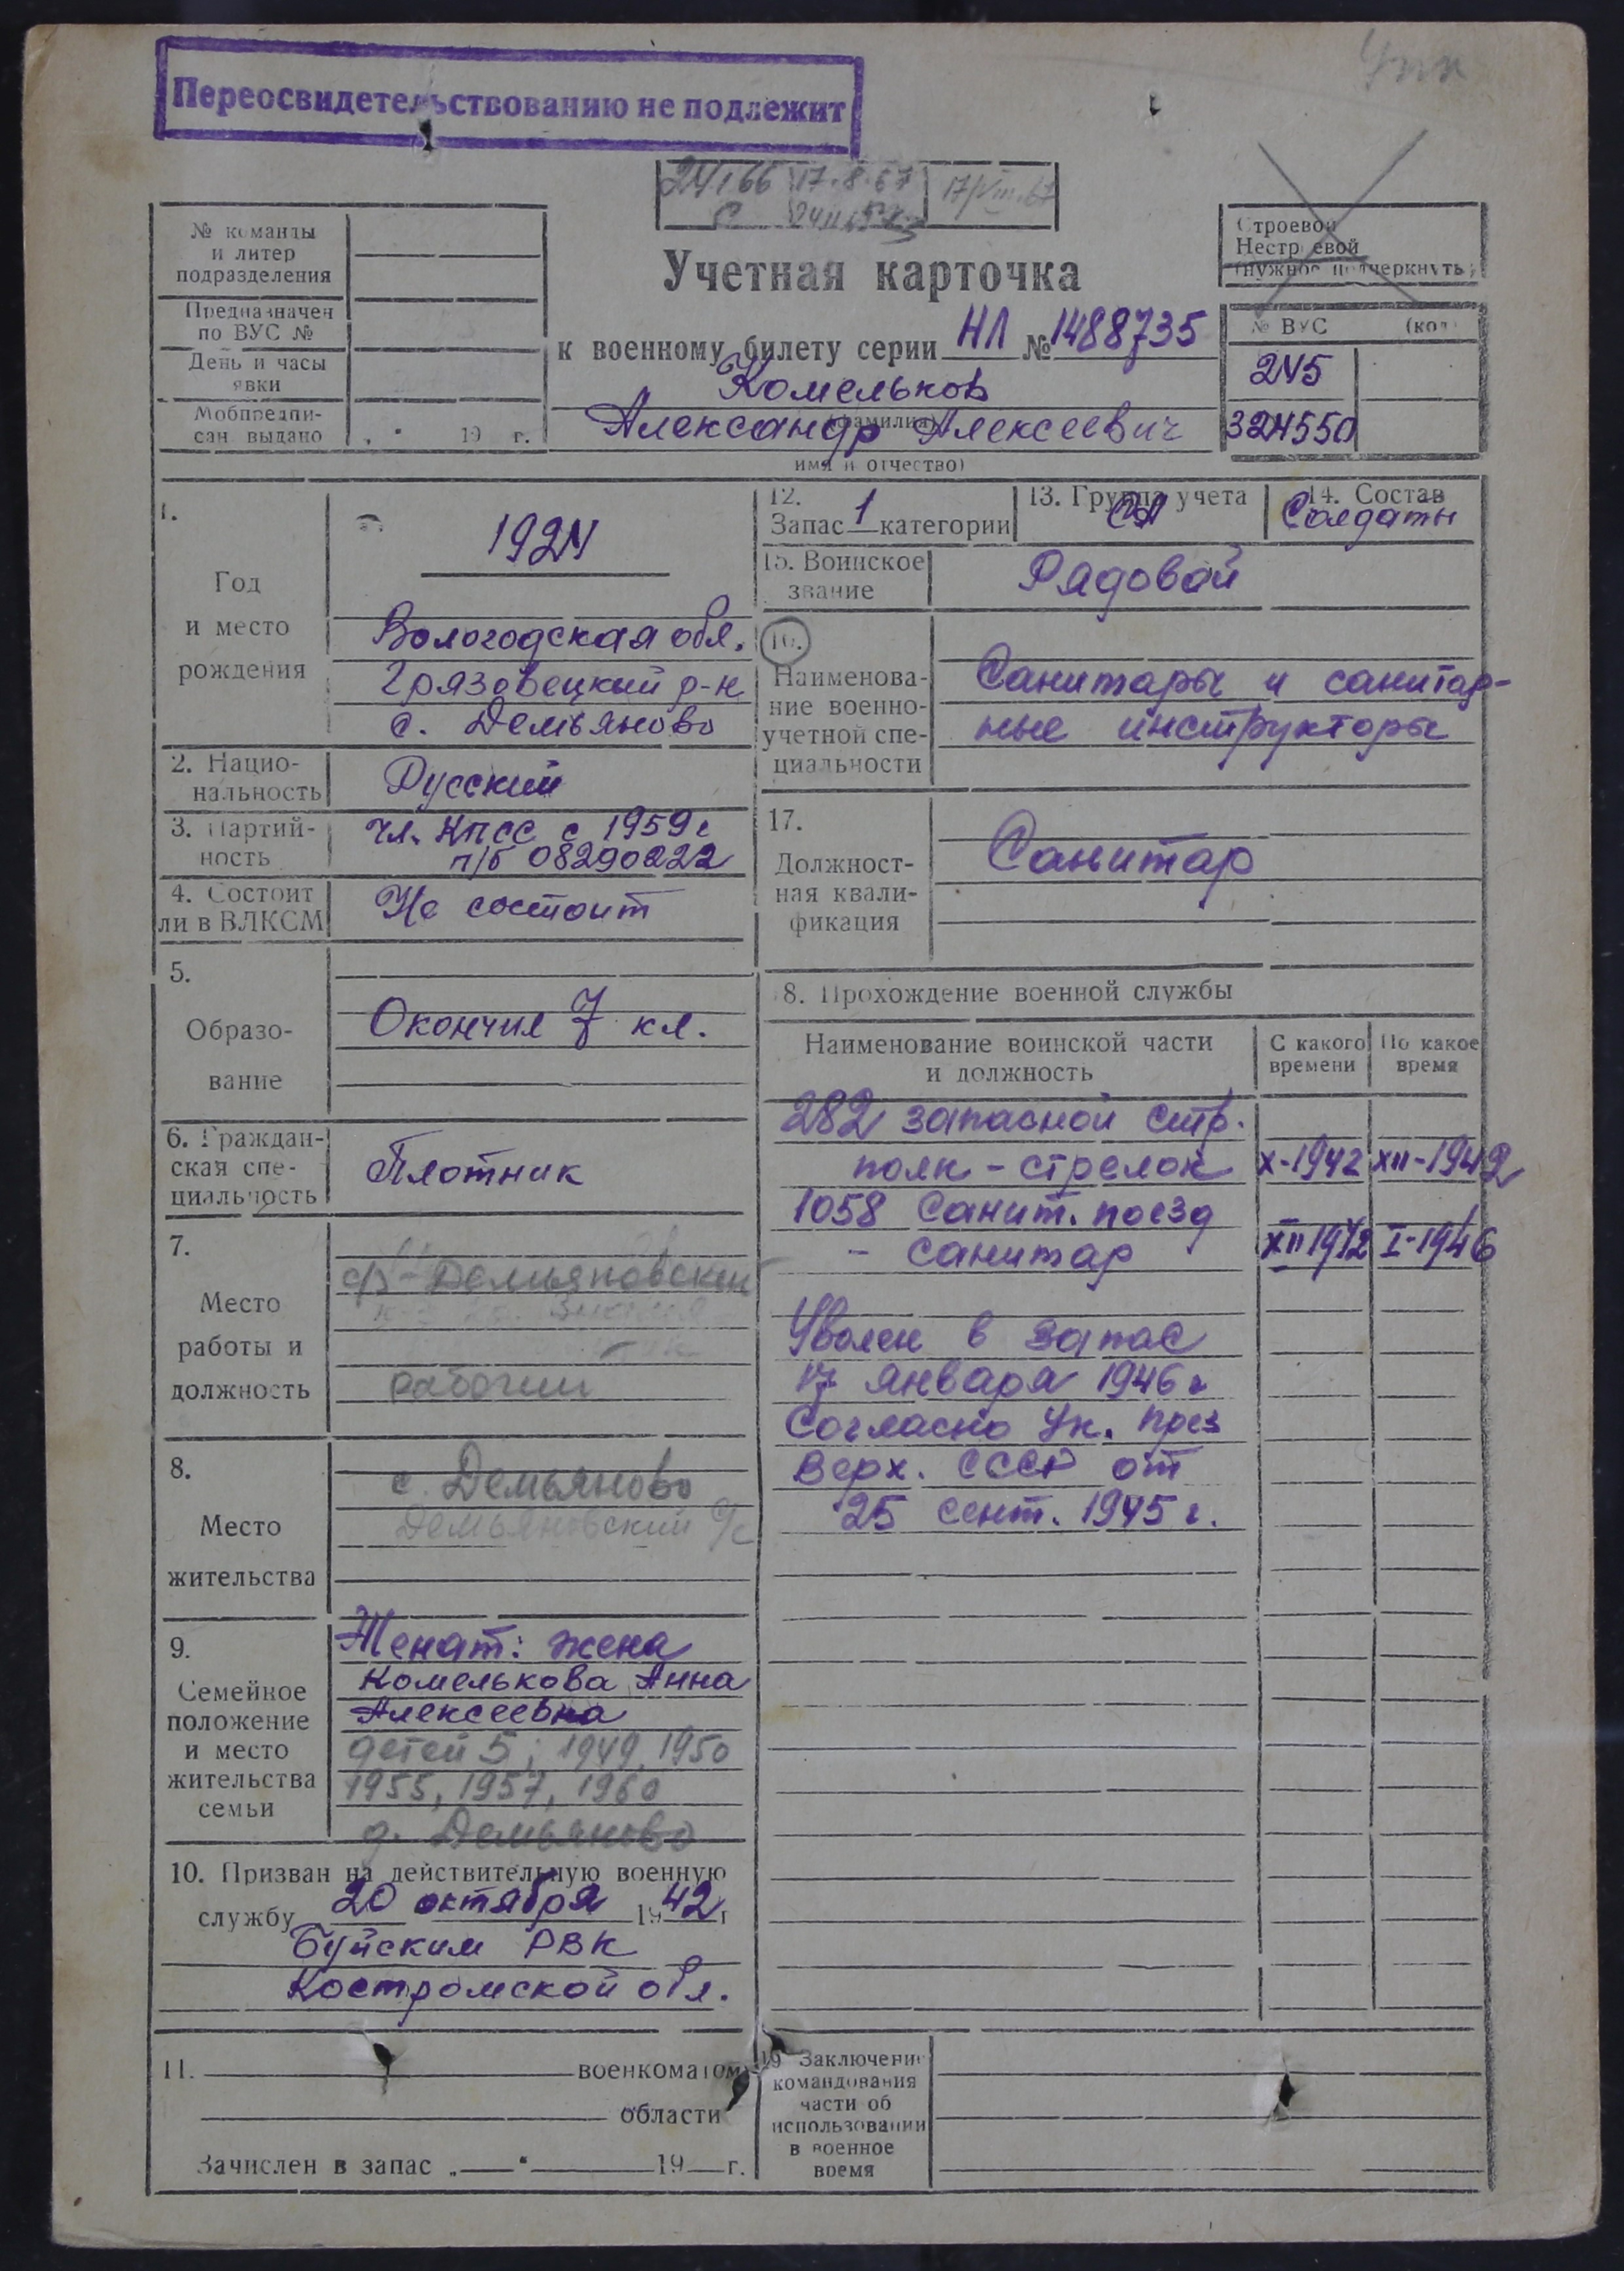 Упк
Переосвидетельствованию не подлежит
17.8.67
17/VIII.67
№ команды
и литер
подразделения
Предназначен
по ВУС №
День и часы
явки
Мобпредпи-
сан. выдано „ " 19 г.
Строевой
Нестроевой
(нужное подчеркнуть)
Учетная карточка
к военному билету серии НЛ № 1488735
Комельков
(фамилия)
Александр Алексеевич
имя и отчество)
№ ВУС (код)
245
324550
1.
Год
и место
рождения
1924
Вологодская обл.
Грязовецкий р-н
с. Демьяново
2. Нацио-
нальность
Русский
3. Партий-
ность
Чл. КПСС с 1959 г
п/б 08290222
4. Состоит
ли в ВЛКСМ
Не состоит
5.
Образо-
вание
Окончил 7 кл.
6. Граждан-
ская спе-
циальность
Плотник
7.
Место
работы и
должность
Демьяновский
рабочий
8.
Место
жительства
с. Демьяново
Демьяновский с/с
9.
Семейное
положение
и место
жительства
семьи
Женат: жена
Комелькова Анна
Алексеевна
детей 5; 1949, 1950
1955, 1957, 1960
д. Демьяново
10. Призван на действительную военную
службу 20 октября 1942 г
Буйским РВК
Костромской обл.
11. военкоматом
области
Зачислен в запас „ " 19 г.
12.
Запас 1 категории
13. Группа учета
СА
14. Состав
Солдаты
15. Воинское
звание
Рядовой
16.
Наименова-
ние военно-
учетной спе-
циальности
Санитары и санитар-
ные инструкторы
17.
Должност-
ная квали-
фикация
Санитар
18. Прохождение военной службы
Наименование воинской части
и должность
С какого
времени
По какое
время
282 запасной стр.
полк - стрелок X-1942 XII-1942
1058 Санит. поезд
- санитар XII 1942 I-1946
Уволен в запас
17 января 1946 г
Согласно Ук. през
Верх. СССР от
25 сент. 1945 г.
19 Заключение
командования
части об
использовании
в военное
время